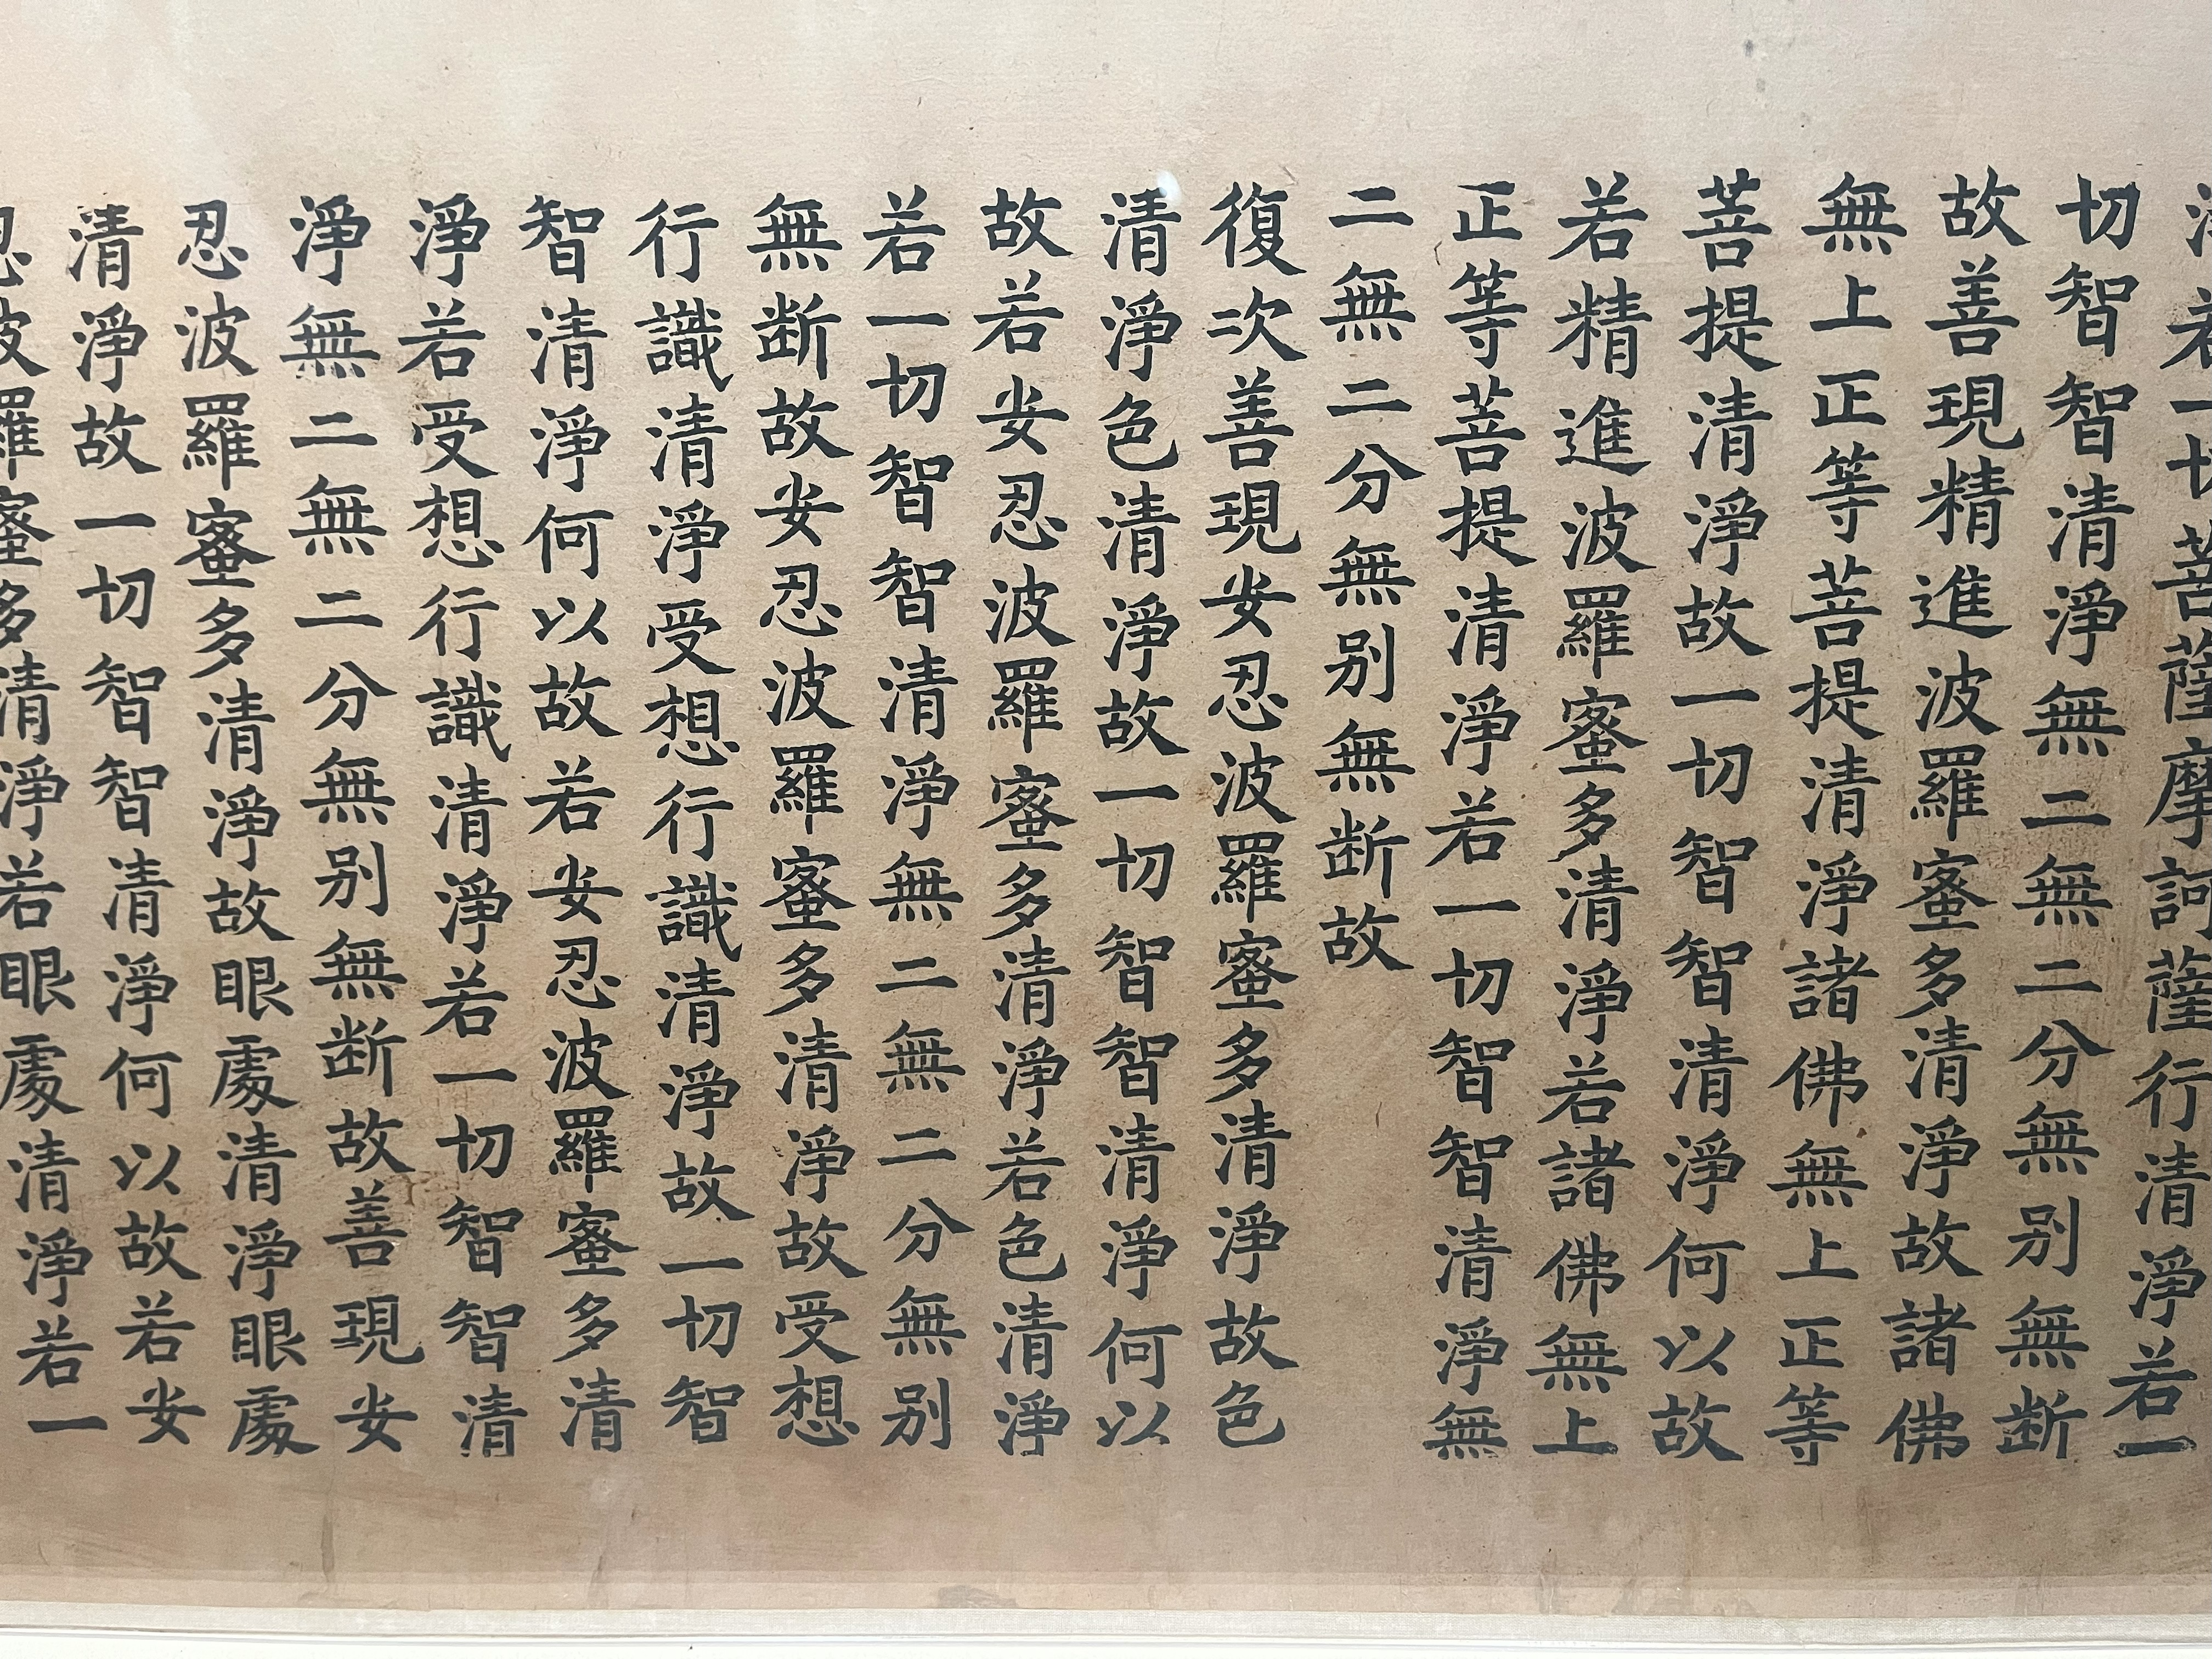 若一切菩薩摩訶薩行清淨若一
切智智清淨無二無二分無别無断
故善現精進波羅蜜多清淨故諸佛
無上正等菩提清淨諸佛無上正等
菩提清淨故一切智智清淨何以故
若精進波羅蜜多清淨若諸佛無上
正等菩提清淨若一切智智清淨無
二無二分無别無断故
復次善現安忍波羅蜜多清淨故色
清淨色清淨故一切智智清淨何以
故若安忍波羅蜜多清淨若色清淨
若一切智智清淨無二無二分無别
無断故安忍波羅蜜多清淨故受想
行識清淨受想行識清淨故一切智
智清淨何以故若安忍波羅蜜多清
淨若受想行識清淨若一切智智清
淨無二無二分無别無断故善現安
忍波羅蜜多清淨故眼處清淨眼處
清淨故一切智智清淨何以故若安
忍波羅蜜多清淨若眼處清淨若一